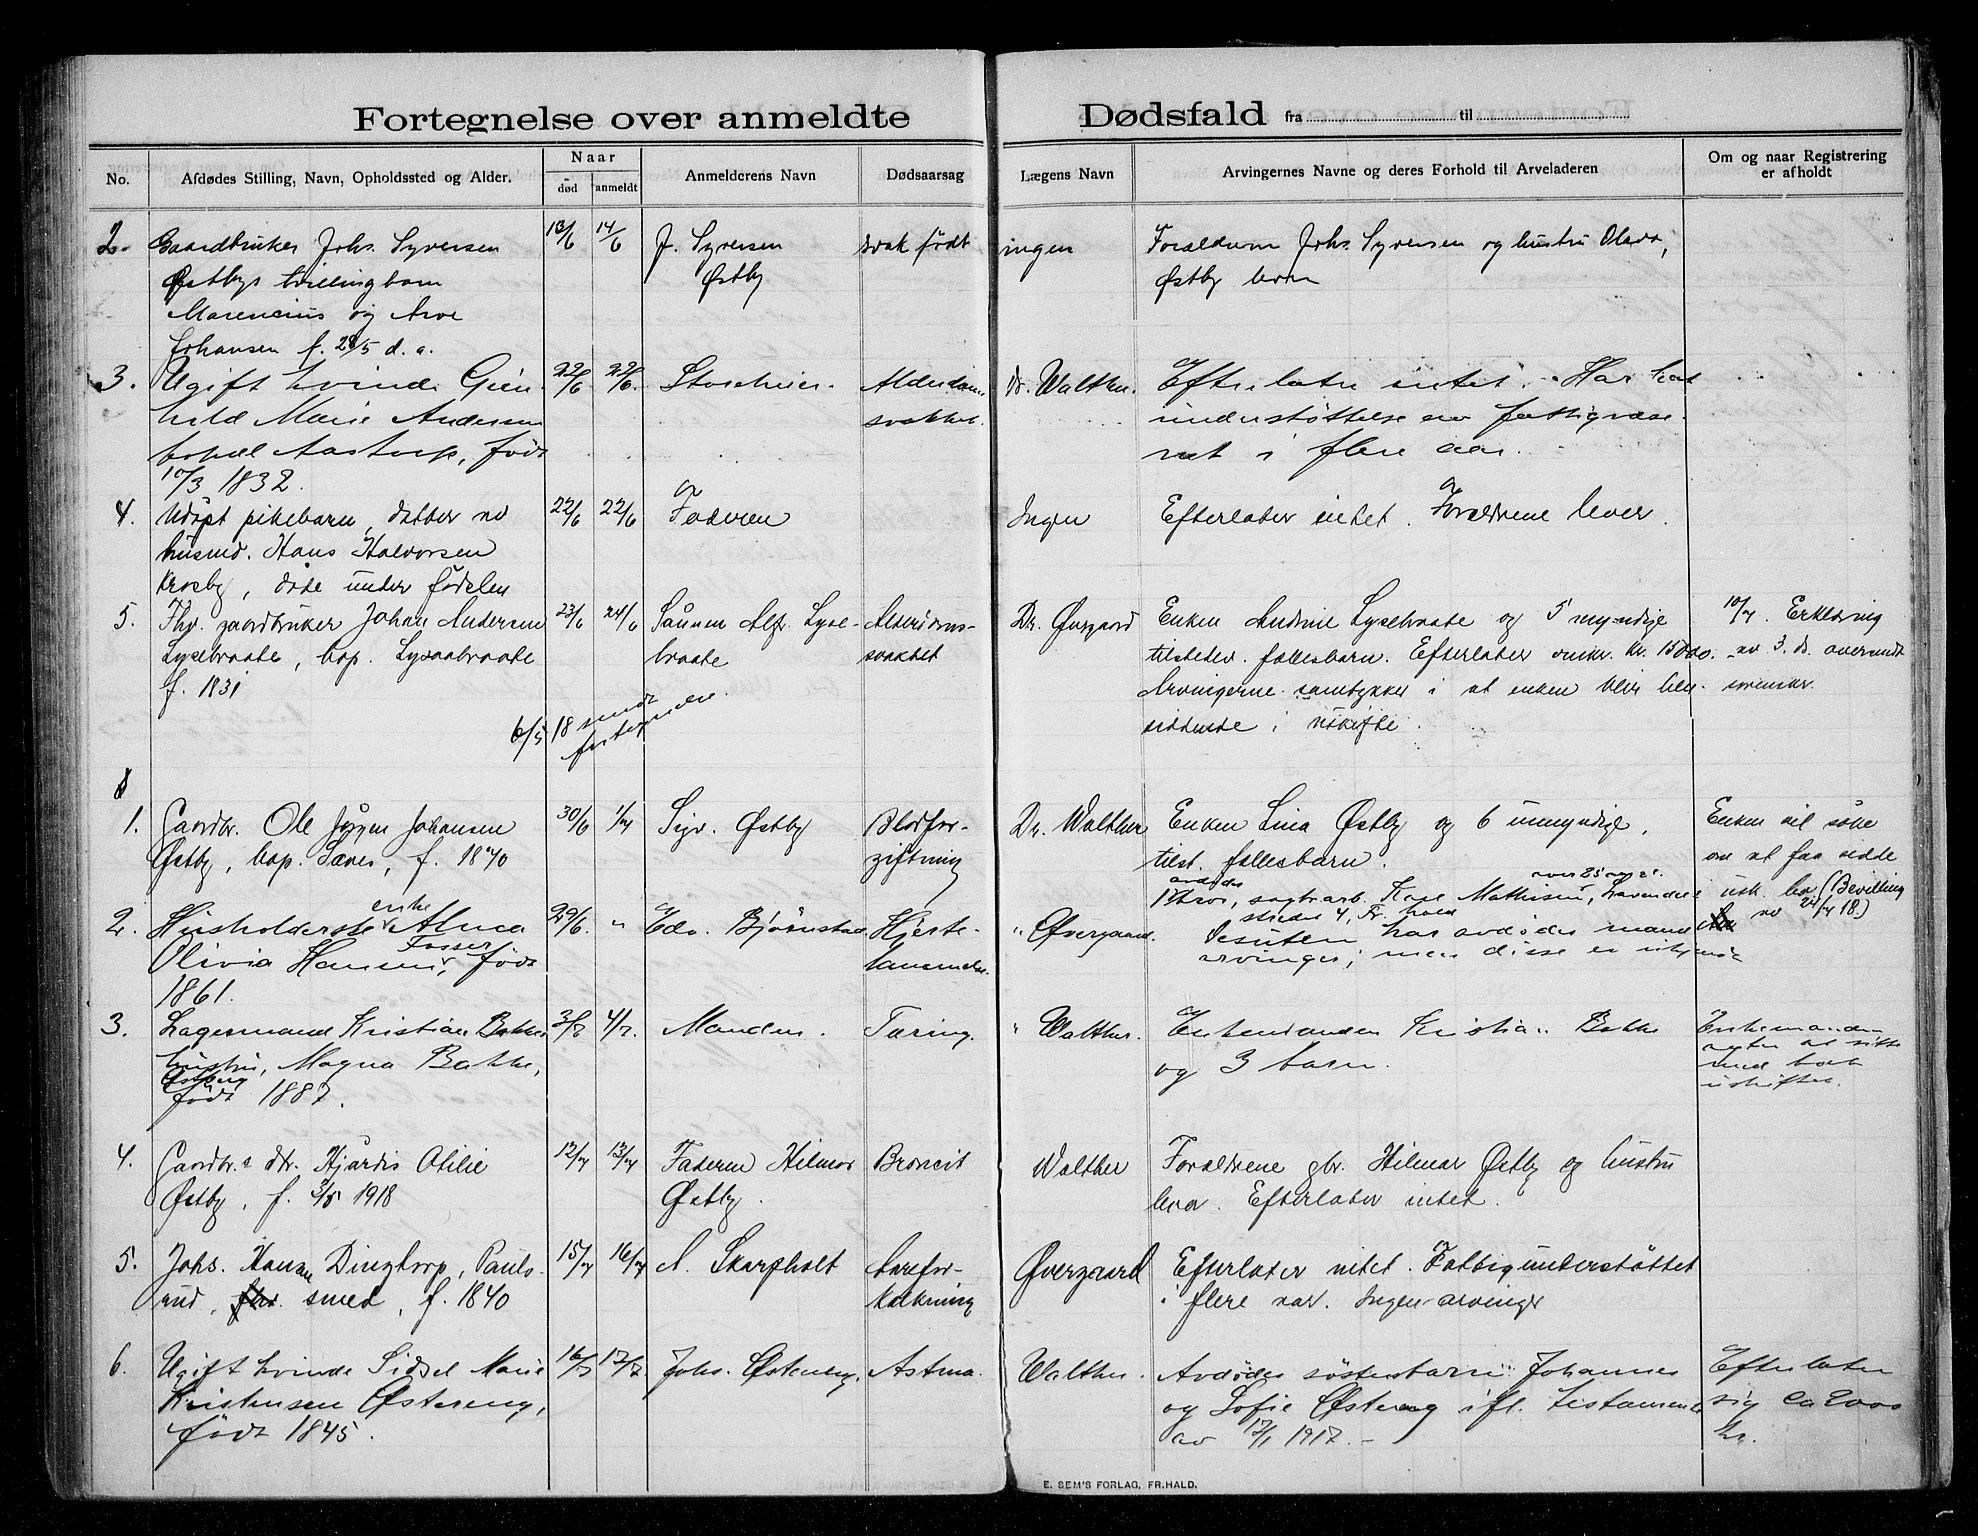 Fortegnelse over anmeldte Dødsfald fra til
No.
Afdødes Stilling, Navn, Opholdssted og Alder.
Naar
død
anmeldt
Anmelderens Navn
Dødsaarsag
Lægens Navn
Arvingernes Navne og deres Forhold til Arveladeren
Om og naar Registrering
er afholdt
2. Gaardbruker Johs. Syversen 13/6 14/6 J. Syversen svak født ingen Forældrene Johs. Syversen og hustru Olava,
Østbys tvillingbarn Østby Østby lever
Marencius og Arve
Johansen f. 28/5 d. a.
3. Ugift kvinde Gun- 22/6 22/6. Alderdoms- Dr. Walther. Efterlater intet. Har hat
hild Marie Andersen svakhet. understøttelse av fattigvæse-
bopæl Aastorp, født net i flere aar.
10/3 1832.
4. Udøpt pikebarn, datter av 22/6 22/6 Faderen Ingen Efterlater intet. Forældrene lever.
husmd. Hans Halvorsen
Krosby, døde under fødselen
5. Fhv. gaardbruker Johan Andersen 23/6 24/6 Sønnen Alfr. Lyse- Alderdoms- Dr. Øvergaard Enken Andrine Lysebraate og 5 myndige 10/7. Erklæring
Lysebraate, bop. Lysebraate braate svakhet tilstedev. fællesbarn. Efterlater omkr. kr. 1500. av 3. ds. oversendt
f. 1831 Arvingerne samtykker i at enken blir hen- sorenskr.
siddende i uskifte.
6/5 18 sendt
fortegnelse.
8
1. Gaardbr. Ole Jørgen Johansen 30/6 1/7 Sigv. Østby Blodfor- Dr. Walther Enken Lina Østby og 6 umyndige, Enken vil søke
Østby, bop. f. 1870 giftning tilst. fællesbarn. om at faa sidde
avdødes over 25 aar
bror, sagarb. Karl Mathisen, usk. bo (Bevilling
stræde 4, Fr.hald av 24/7 18.)
2. Husholderske enke Alma 29/6. " Edv. Bjørnstad Hjerte- " Øvergaard. Desuten har avdødes mand
Olivia Hansen Fosser, født lammelse. arvinger; men disse er ukjendt
1861.
3. Lagesmand Kristian Bakkes 4/7. Manden. Tæring. " Walther. Enkemanden Kristian Bakke Enkemanden
hustru, Magna Bakke, og 3 barn. agter at sitte
Østberg med boet
født 1887. uskiftet.
4. Gaardbr.s dtr. Hjårdis Otilie 12/7 13/7 Faderen Hilmar Broncit Walther Forældrene gbr. Hilmar Østby og hustru
Østby, f. 3/5 1918 Østby. lever. Efterlater intet.
5. Johs. Hansen Dingtorp, Pauls- 15/7 16/7 A. Skarpholt Aarefor- Øvergaard Efterlater intet. Fattigunderstøttet
rud, smed, f. 1840 kalkning i flere aar. Ingen arvinger
6. Ugift kvinde Sidsel Marie 16/7 17/7. Johs. Østereng. Astma. Walther. Avdødes søsterbarn: Johannes Efterlater
Kristensen Østereng, og Sofie Østereng ifl. testamente sig ca 2000
født 1845. av 17/1 1917. - kr.
E. SEM'S FORLAG, FR.HALD.